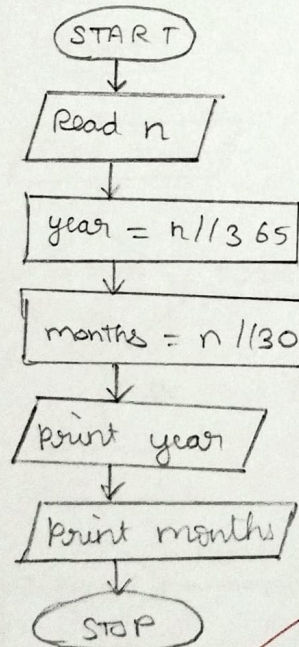 START
Read n
year = n//365
months = n//30
print year
print months
STOP